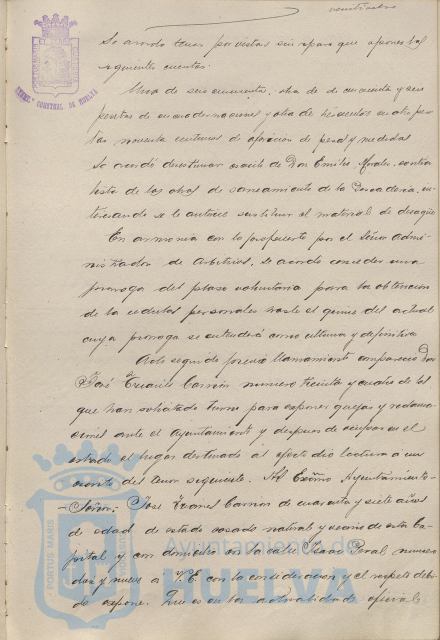 Se acordó tener por vistas sin reparo que oponer las
siguientes cuentas:
Una de seis cincuenta, otra de cincuenta y seis
pesetas de encuadernaciones y otra de
noventa centimos de aferición de pesas y medidas
Se acordó desestimar escrito de Don Emilio Morales, contra
tista de las obras de saneamiento de la Pescadería, in
teresando se le autorice sustituir el material de desagüe
En armonía con lo propuesto por el Señor Admi
nistrador de Arbitrios, se acordó conceder una
prorroga del plazo voluntario para la obtención
de la cedulas personales hasta el quince del actual
cuya prorroga se entenderá como ultima y definitiva
Acto seguido previo llamamiento compareció Don
José Carrión numero treinta y cuatro de los
que han solicitado turno para exponer quejas y reclama
ciones ante el Ayuntamiento y despues de ocupar en el
estrado el lugar destinado al efecto dió lectura a un
escrito del tenor siguiente. Al Excmo Ayuntamiento-
-Señor: José Carrión de cuarenta y siete años
de edad de estado casado natural y vecino de esta Ca
pital y con domicilio en la calle Isaac Peral numero
dos y nueve a V.E. con la consideración y el respeto debi-
do expone. Que en la actualidad
EXCMO. CONSTNAL. DE HUELVA
PORTUS MARIS
Ayuntamiento de
HUELVA